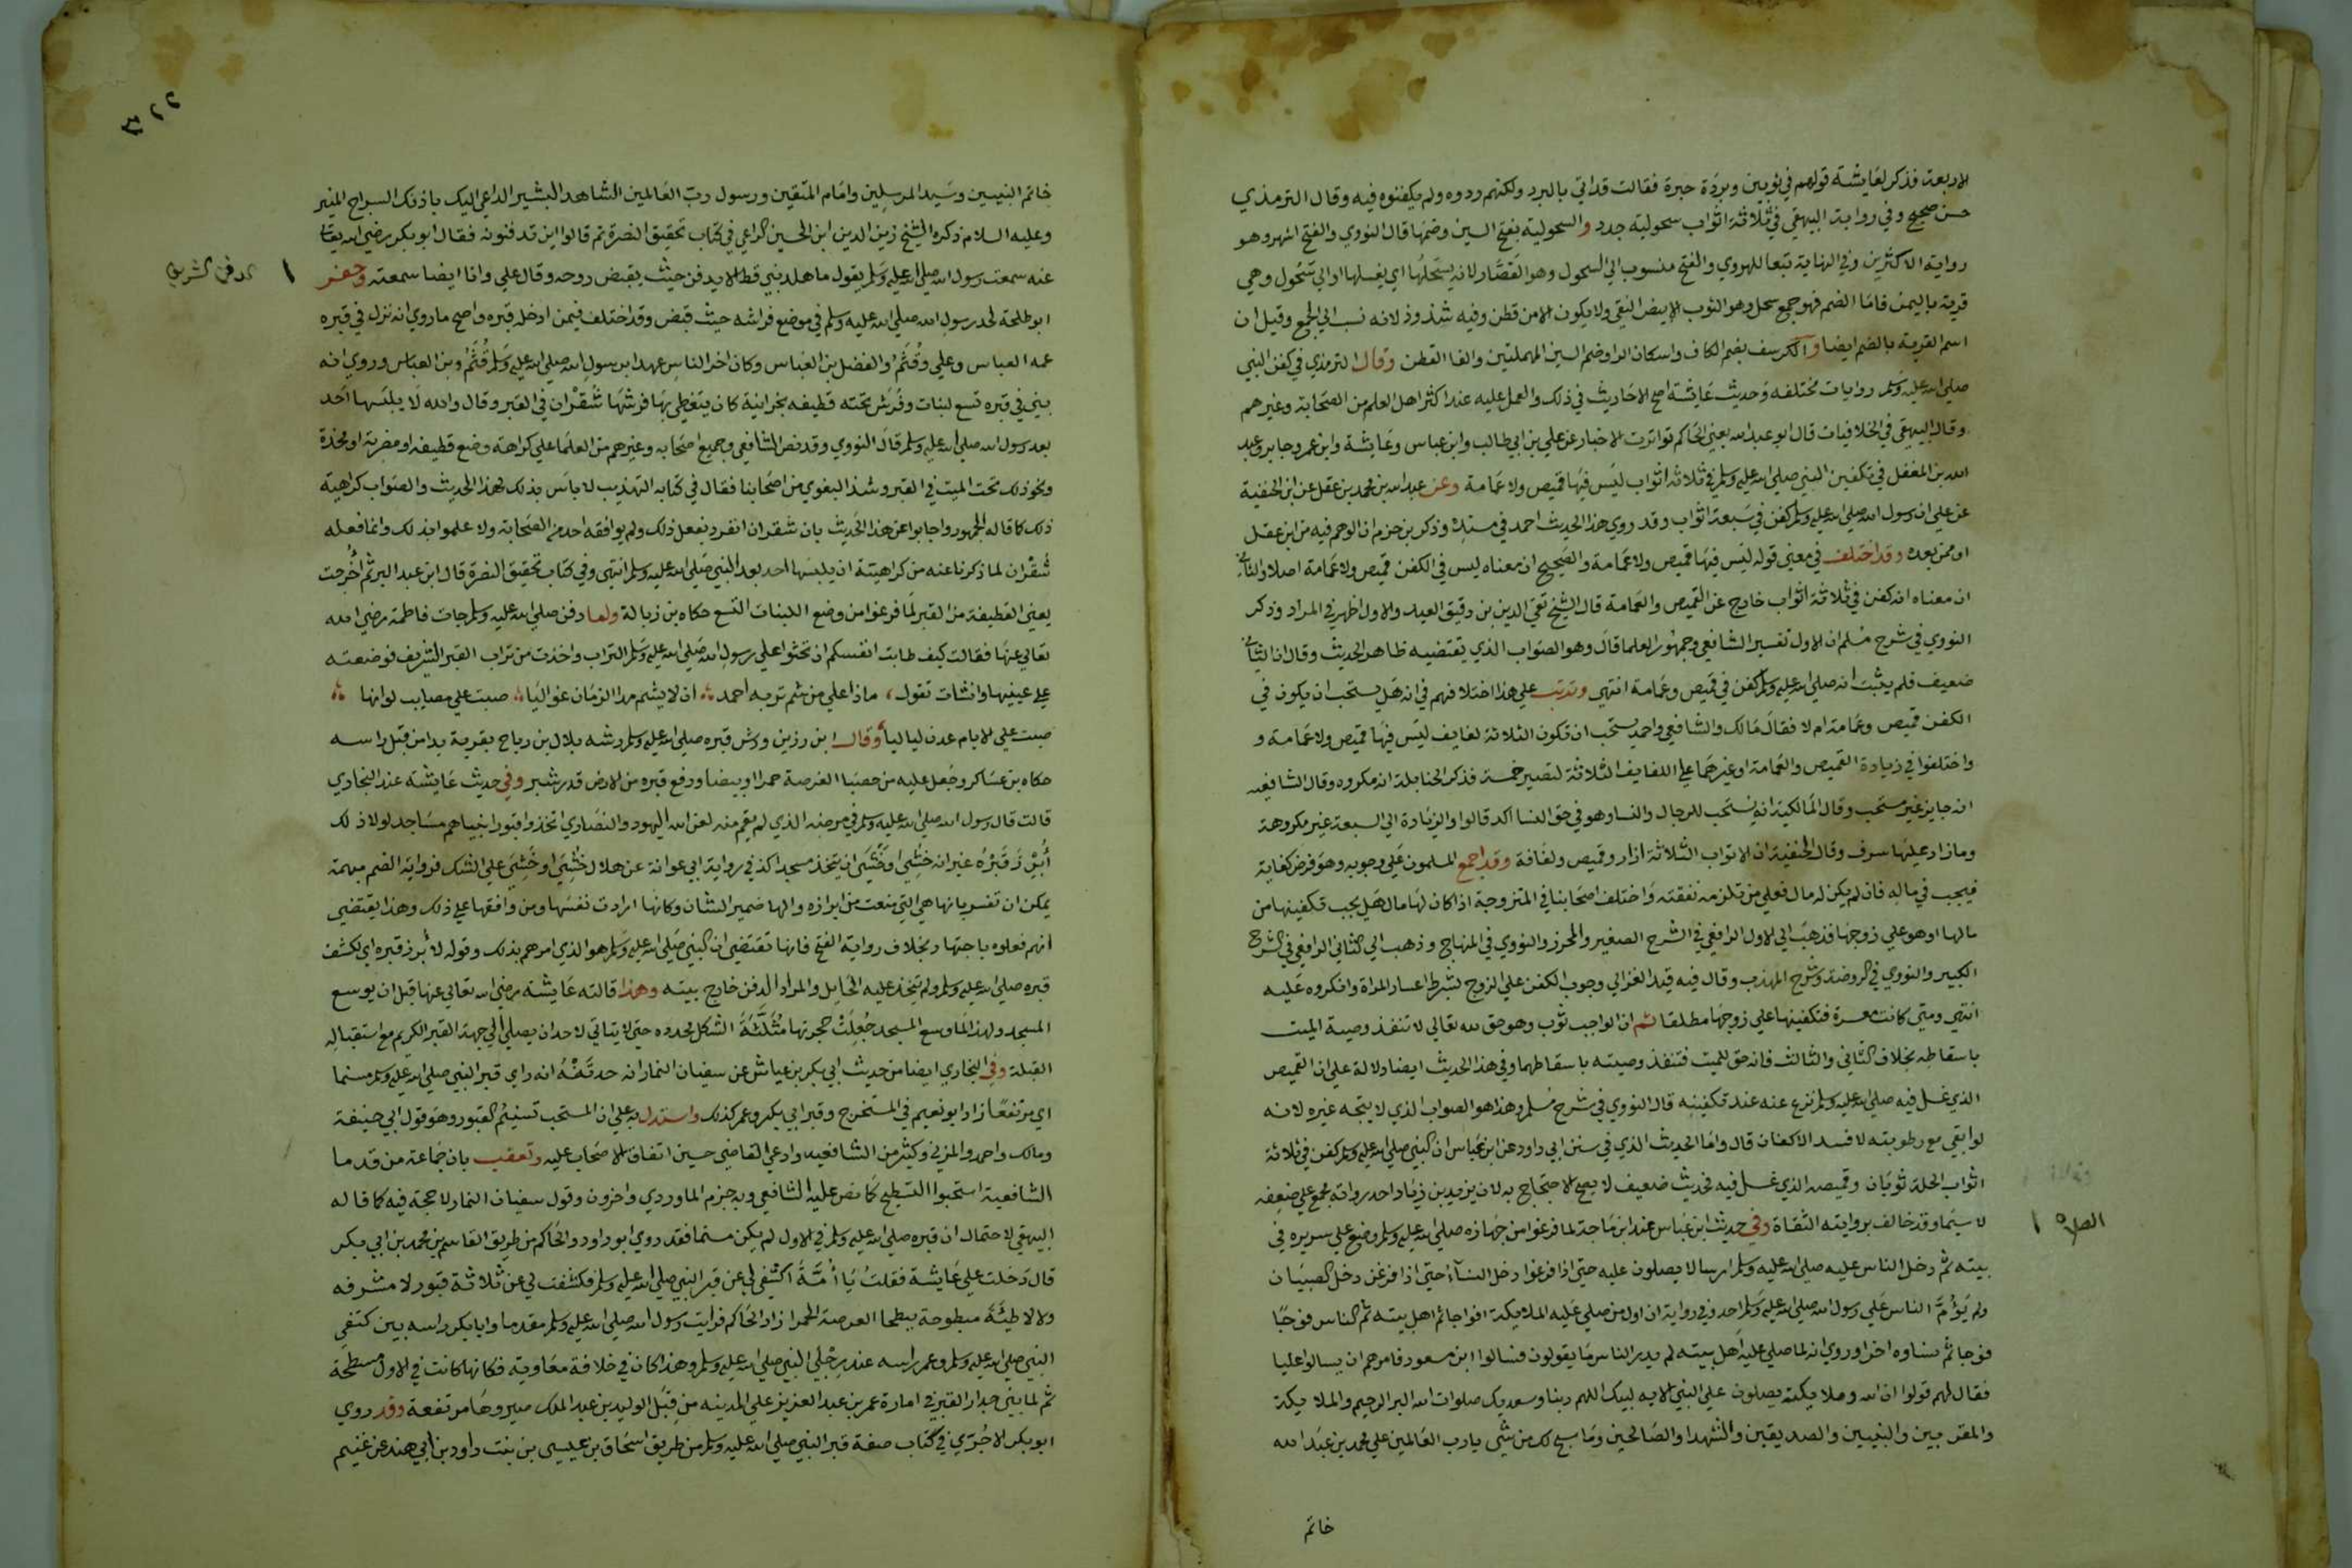 الاربعة فذكر لعايشة قولهم في ثوبين وبردة حبرة فقالت قد اتي بالبرد ولكنهم ردوه ولم يكفنوه فيه وقال الترمذي
حسن صحيح وفي رواية البيهقي في ثلاثة اثواب سحولية جدد والسحولية بفتح السين وضمها قال النووي والفتح اشهر وهو
رواية الاكثرين وفي النهاية تبعا للهروي والفتح منسوب الي السحول وهو القصار لانه يسحلها اي يغسلها او الي سحول وهي
قرية باليمن فاما الضم فهو جمع سحل وهو الثوب الابيض النقي ولا يكون الا من قطن وفيه شذوذ لانه نسب الي الجمع وقيل ان
اسم القرية بالضم ايضا والكرسف بضم الكاف واسكان الرا وضم السين المهملتين والفا القطن وقال الترمذي في كفن النبي
صلي الله عليه وسلم روايات مختلفه وحديث عايشة اصح الاحاديث في ذلك والعمل عليه عند اكثر اهل العلم من الصحابة وغيرهم
وقال البيهقي في الخلافيات قال ابو عبد الله يعني الحاكم تواترت الاخبار عن علي بن ابي طالب وابن عباس وعايشة وابن عمر وجابر وعبد
الله بن المغفل في تكفين النبي صلي الله عليه وسلم في ثلاثه اثواب ليس فيها قميص ولا عمامة وعن عبد الله بن محمد بن عقل عن ابن الحنفية
عن علي ان رسول الله صلي الله عليه وسلم كفن في سبعة اثواب وقد روي هذا الحديث احمد في مسنده وذكر بن حزم ان الوهم فيه من ابن عقل
او ممن بعده وقد اختلف في معني قوله ليس فيها قميص ولا عمامة والصحيح ان معناه ليس في الكفن قميص ولا عمامة اصلا والثاني
ان معناه انه كفن في ثلاثة اثواب خارج عن القميص والعمامة قال الشيخ تقي الدين بن دقيق العيد والاول اظهر في المراد وذكر
النووي في شرح مسلم ان الاول تفسير الشافعي وجمهور العلما قال وهو الصواب الذي يقتضيه ظاهر الحديث وقال ان الثاني
ضعيف فلم يثبت انه صلي الله عليه وسلم كفن في قميص وعمامة انتهي وترتب علي هذا اختلافهم في انه هل يستحب ان يكون في
الكفن قميص وعمامة ام لا فقال مالك والشافعي واحمد يستحب ان تكون الثلاثة لفايف ليس فيها قميص ولا عمامة و
واختلفوا في زيادة القميص والعمامة او غيرهما علي اللفايف الثلاثة لتصير خمسة فذكر الحنابلة انه مكروه وقال الشافعيه
انه جايز غير مستحب وقال المالكية انه يستحب للرجال والنسا وهو في حق النسا اكد قالوا والزيادة الي السبعة غير مكروهة
وما زاد عليها سرف وقال الحنفية ان الاثواب الثلاثة ازار وقميص ولفافة وقد اجمع المسلمون علي وجوبه وهو فرض كفاية
فيجب في ماله فان لم يكن له مال فعلي من تلزمه نفقته واختلف اصحابنا في المتزوجة اذا كان لها مال هل يجب تكفينها من
مالها او هو علي زوجها فذهب الي الاول الرافعي في الشرح الصغير والمحرر والنووي في المنهاج وذهب الي الثاني الرافعي في الشرح
الكبير والنووي في الروضة وشرح المهذب وقال فيه قيد الغزالي وجوب الكفن علي الزوج بشرط اعسار المراة وانكروه عليه
انتهي ومتي كانت معسرة فتكفينها علي زوجها مطلقا ثم ان الواجب ثوب وهو حق لله تعالي لا تنفذ وصية الميت
باسقاطه بخلاف الثاني والثالث فانه حق للميت فتنفذ وصيته باسقاطهما وفي هذا الحديث ايضا دلالة علي ان القميص
الذي غسل فيه صلي الله عليه وسلم نزع عنه عند تكفينه قال النووي في شرح مسلم وهذا هو الصواب الذي لا يتجه غيره لانه
لو ابقي مع رطوبته لافسد الاكفان قال واما الحديث الذي في سنن ابي داود عن ابن عباس ان النبي صلي الله عليه وسلم كفن في ثلاثة
اثواب الحلة ثوبان وقميصه الذي غسل فيه فحديث ضعيف لا يصح الاحتجاج به لان يزيد بن زياد احد رواته مجمع علي ضعفه
لا سيما وقد خالف بروايته الثقاة وفي حديث ابن عباس عند ابن ماجة لما فرغوا من جهازه صلي الله عليه وسلم وضع علي سريره في
الصلاه
بيته ثم دخل الناس عليه صلي الله عليه وسلم ارسالا يصلون عليه حتي اذا فرغوا دخل النسآ حتي اذا فرغن دخل الصبيان
ولم يؤم الناس علي رسول الله صلي الله عليه وسلم احد وفي رواية ان اول من صلي عليه الملايكة افواجا ثم اهل بيته ثم الناس فوجا
فوجا ثم نساوه اخرا وروي انه لما صلي عليه اهل بيته لم يدر الناس ما يقولون فسالوا ابن مسعود فامرهم ان يسالوا عليا
فقال لهم قولوا ان الله وملايكته يصلون علي النبي الايه لبيك اللهم ربنا وسعديك صلوات الله البر الرحيم والملايكة
والمقربين والنبيين والصديقين والشهدا والصالحين وما سبح لك من شي يا رب العالمين علي محمد بن عبد الله
خاتم
خاتم النبيين وسيد المرسلين وامام المتقين ورسول رب العالمين الشاهد البشير الداعي اليك باذنك السراج المنير
وعليه السلام ذكره الشيخ زين الدين ابن الحسين المراغي في كتاب تحقيق النصرة ثم قالوا اين تدفنونه فقال ابو بكر رضي الله تعالي
عنه سمعت رسول الله صلي الله عليه وسلم يقول ما هلك نبي قط الا يدفن حيث يقبض روحه وقال علي وانا ايضا سمعته وحفر
الدفن الشريف
ابو طلحة لحد رسول الله صلي الله عليه وسلم في موضع فراشه حيث قبض وقد اختلف فيمن ادخله قبره واصح ما روي انه نزل في قبره
عمه العباس وعلي وقثم والفضل بن العباس وكان اخر الناس عهدا برسول الله صلي الله عليه وسلم قثم بن العباس وروي انه
بني في قبره تسع لبنات وفرش تحته قطيفه نجرانية كان يتغطي بها فرشها شقران في القبر وقال والله لا يلبسها احد
بعد رسول الله صلي الله عليه وسلم قال النووي وقد نص الشافعي وجميع اصحابه وغيرهم من العلما علي كراهة وضع قطيفه او مضربة او مخدة
ونحو ذلك تحت الميت في القبر وشذ البغوي من اصحابنا فقال في كتابه التهذيب لا باس بذلك لهذا الحديث والصواب كراهية
ذلك كما قاله الجمهور واجابوا عن هذا الحديث بان شقران انفرد بفعل ذلك ولم يوافقه احد من الصحابة ولا علموا بذلك وانما فعله
شقران لما ذكرنا عنه من كراهيته ان يلبسها احد بعد النبي صلي الله عليه وسلم انتهي وفي كتاب تحقيق النصرة قال ابن عبد البر ثم اخرجت
يعني القطيفة من القبر لما فرغوا من وضع اللبنات التسع حكاه بن زبالة ولما دفن صلي الله عليه وسلم جات فاطمة رضي الله
تعالي عنها فقالت كيف طابت انفسكم ان تحثوا علي رسول الله صلي الله عليه وسلم التراب واخذت من تراب القبر الشريف فوضعته
علي عينيها وانشات تقول ماذا علي من شم تربه احمد ان لا يشم مدا الزمان غواليا صبت علي مصايب لو انها
صبت علي الايام عدن لياليا وقال ابن رزين ورش قبره صلي الله عليه وسلم رشه بلال بن رباح بقربة بدا من قبل راسه
حكاه بن عساكر وجعل عليه من حصبا العرصة حمرا وبيضا ورفع قبره من الارض قدر شبر وفي حديث عايشة عند البخاري
قالت قال رسول الله صلي الله عليه وسلم في مرضه الذي لم يقم منه لعن الله اليهود والنصاري اتخذوا قبور انبياهم مساجد لولا ذلك
أبرز قبره غير انه خشي او خشي ان يتخذ مسجدا كذا في رواية ابي عوانة عن هلال خشي او خشي علي الشك فرواية الضم مبهمة
يمكن ان تفسر بانها هي التي منعت من ابرازه والها ضمير الشان وكانها ارادت نفسها ومن وافقها علي ذلك وهذا يقتضي
انهم فعلوه باجتهاد بخلاف رواية الفتح فانها تقتضي ان النبي صلي الله عليه وسلم هو الذي امرهم بذلك وقوله لأبرز قبره اي لكشف
قبره صلي الله عليه وسلم ولم يتخذ عليه الحايل والمراد الدفن خارج بيته وهذا قالته عايشة رضي الله تعالي عنها قبل ان يوسع
المسجد ولهذا لما وسع المسجد جعلت حجرتها مثلثة الشكل محددة حتي لا يتاتي لاحد ان يصلي الي جهة القبر الكريم مع استقباله
القبلة وفي البخاري ايضا من حديث ابي بكر بن عياش عن سفيان التمار انه حدثه انه راي قبر النبي صلي الله عليه وسلم مسنما
اي مرتفعا زاد ابو نعيم في المستخرج وقبر ابي بكر وعمر كذلك واستدل به علي ان المستحب تسنيم القبور وهو قول ابي حنيفة
ومالك واحمد والمزني وكثير من الشافعيه وادعي القاضي حسين اتفاق الاصحاب عليه وتعقب بان جماعة من قدما
الشافعية استحبوا التسطيح كما نص عليه الشافعي وبه جزم الماوردي واخرون وقول سفيان التمار لا حجة فيه كما قاله
البيهقي لاحتمال ان قبره صلي الله عليه وسلم في الاول لم يكن مسنما فقد روي ابو داود والحاكم من طريق القاسم بن محمد بن ابي بكر
قال دخلت علي عايشة فقلت يا أمة اكشفي لي عن قبر النبي صلي الله عليه وسلم فكشفت لي عن ثلاثة قبور لا مشرفه
ولا لاطئة مبطوحة ببطحا العرصة الحمرا زاد الحاكم فرايت رسول الله صلي الله عليه وسلم مقدما وابا بكر راسه بين كتفي
النبي صلي الله عليه وسلم وعمر راسه عند رجلي النبي صلي الله عليه وسلم وهذا كان في خلافة معاوية فكانها كانت في الاول مسطحة
ثم لما بني جدار القبر في امارة عمر بن عبد العزيز علي المدينه من قبل الوليد بن عبد الملك صيروها مرتفعة وقد روي
ابو بكر الاجري في كتاب صفة قبر النبي صلي الله عليه وسلم من طريق اسحاق بن عيسي بن بنت داود بن ابي هند عن غنيم